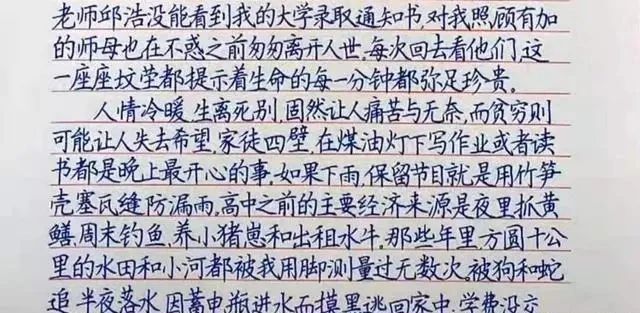 老师邱浩没能看到我的大学录取通知书,对我照顾有加
的师母也在不惑之前匆匆离开人世。每次回去看他们,这
一座座坟茔都提示着生命的每一分钟都弥足珍贵。
人情冷暖,生离死别,固然让人痛苦与无奈,而贫穷则
可能让人失去希望。家徒四壁,在煤油灯下写作业或者读
书都是晚上最开心的事。如果下雨,保留节目就是用竹笋
壳塞瓦缝防漏雨。高中之前的主要经济来源是夜里抓黄
鳝、周末钓鱼、养小猪崽和出租水牛。那些年里,方圆十公
里的水田和小河都被我用脚测量过无数次。被狗和蛇
追、半夜落水、因蓄电瓶进水而摸黑逃回家中;学费没交